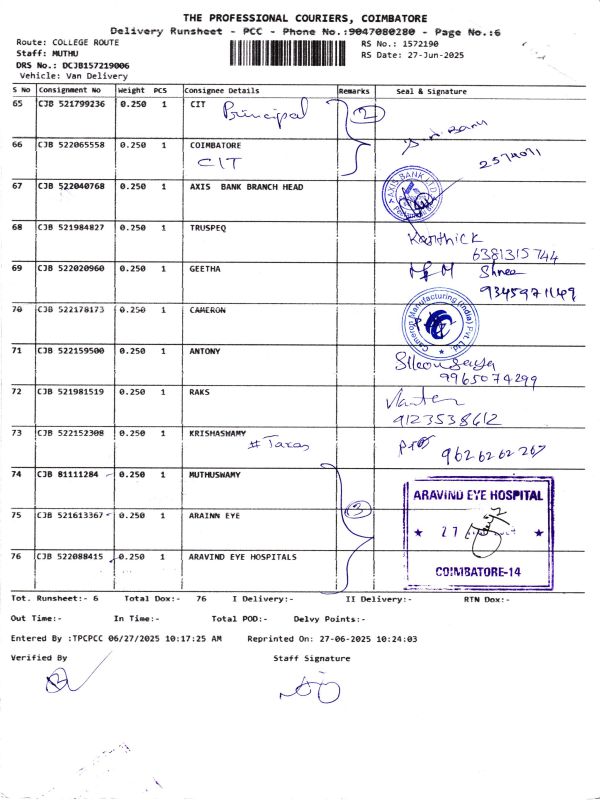 THE PROFESSIONAL COURIERS, COIMBATORE
Delivery Runsheet - PCC - Phone No.:9047080280 - Page No.:6
Route: COLLEGE ROUTE
Staff: MUTHU
DRS No.: DCJB157219006
Vehicle: Van Delivery
RS No.: 1572190
RS Date: 27-Jun-2025
S No Consignment No Weight PCS Consignee Details Remarks Seal & Signature
65 CJB 521799236 0.250 1 CIT
Principal
2
66 CJB 522065558 0.250 1 COIMBATORE
CIT
2574071
67 CJB 522040768 0.250 1 AXIS BANK BRANCH HEAD
AXIS BANK LTD
68 CJB 521984827 0.250 1 TRUSPEQ
Karthick
6381315744
69 CJB 522020960 0.250 1 GEETHA
Shree
9345971149
70 CJB 522178173 0.250 1 CAMERON
Cameron Manufacturing (India) Pvt. Ltd.
71 CJB 522159500 0.250 1 ANTONY
9965074299
72 CJB 521981519 0.250 1 RAKS
9123538612
73 CJB 522152308 0.250 1 KRISHASWAMY
9626262267
74 CJB 81111284 0.250 1 MUTHUSWAMY
ARAVIND EYE HOSPITAL
75 CJB 521613367 0.250 1 ARAINN EYE
3
27
76 CJB 522088415 0.250 1 ARAVIND EYE HOSPITALS
COIMBATORE-14
Tot. Runsheet:- 6 Total Dox:- 76 I Delivery:- II Delivery:- RTN Dox:-
Out Time:- In Time:- Total POD:- Delvy Points:-
Entered By :TPCPCC 06/27/2025 10:17:25 AM Reprinted On: 27-06-2025 10:24:03
Verified By Staff Signature